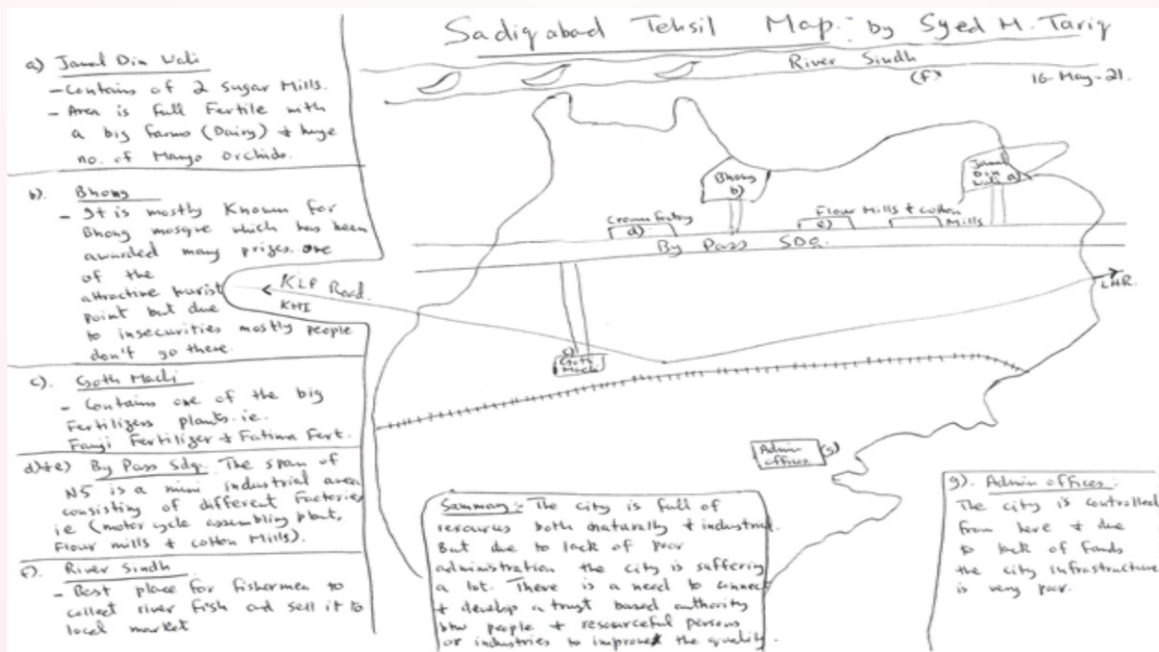 Sadiqabad Tehsil Map: by Syed M. Tariq
River Sindh
(f)
16-May-21.
a) Jamal Din Wali
- Contains of 2 Sugar Mills.
- Area is full Fertile with
a big farms (Dairy) & huge
no. of Mango Orchids.
b). Bhong
- It is mostly Known for
Bhong mosque which has been
awarded many prizes. one
of the
attractive tourist
point but due
to insecurities mostly people
don't go there.
c). Goth Machi
- Contains one of the big
Fertilizers plants. i.e.
Fauji Fertilizer & Fatima Fert.
d)+e) By Pass Sdq. The span of
N5 is a mini industrial area
consisting of different Factories
i.e (motor cycle assembling plant,
Flour mills & cotton Mills).
f). River Sindh
- Best place for fishermen to
collect river fish and sell it to
local market
Bhong
b)
Jamal
Din
Wali a)
Crown factory
d)
Flour Mills & cotton
Mills
e)
By Pass SDQ.
KLP Road.
KHI
LHR.
c)
Goth
Machi
Admin
offices
(g)
Summary:- The city is full of
resources both naturally & industrial.
But due to lack of poor
administration the city is suffering
a lot. There is a need to connect
& develop a trust based authority
btw people & resourceful persons
or industries to improve the quality.
g). Admin offices:
The city is controlled
from here & due
to lack of funds
the city infrastructure
is very poor.